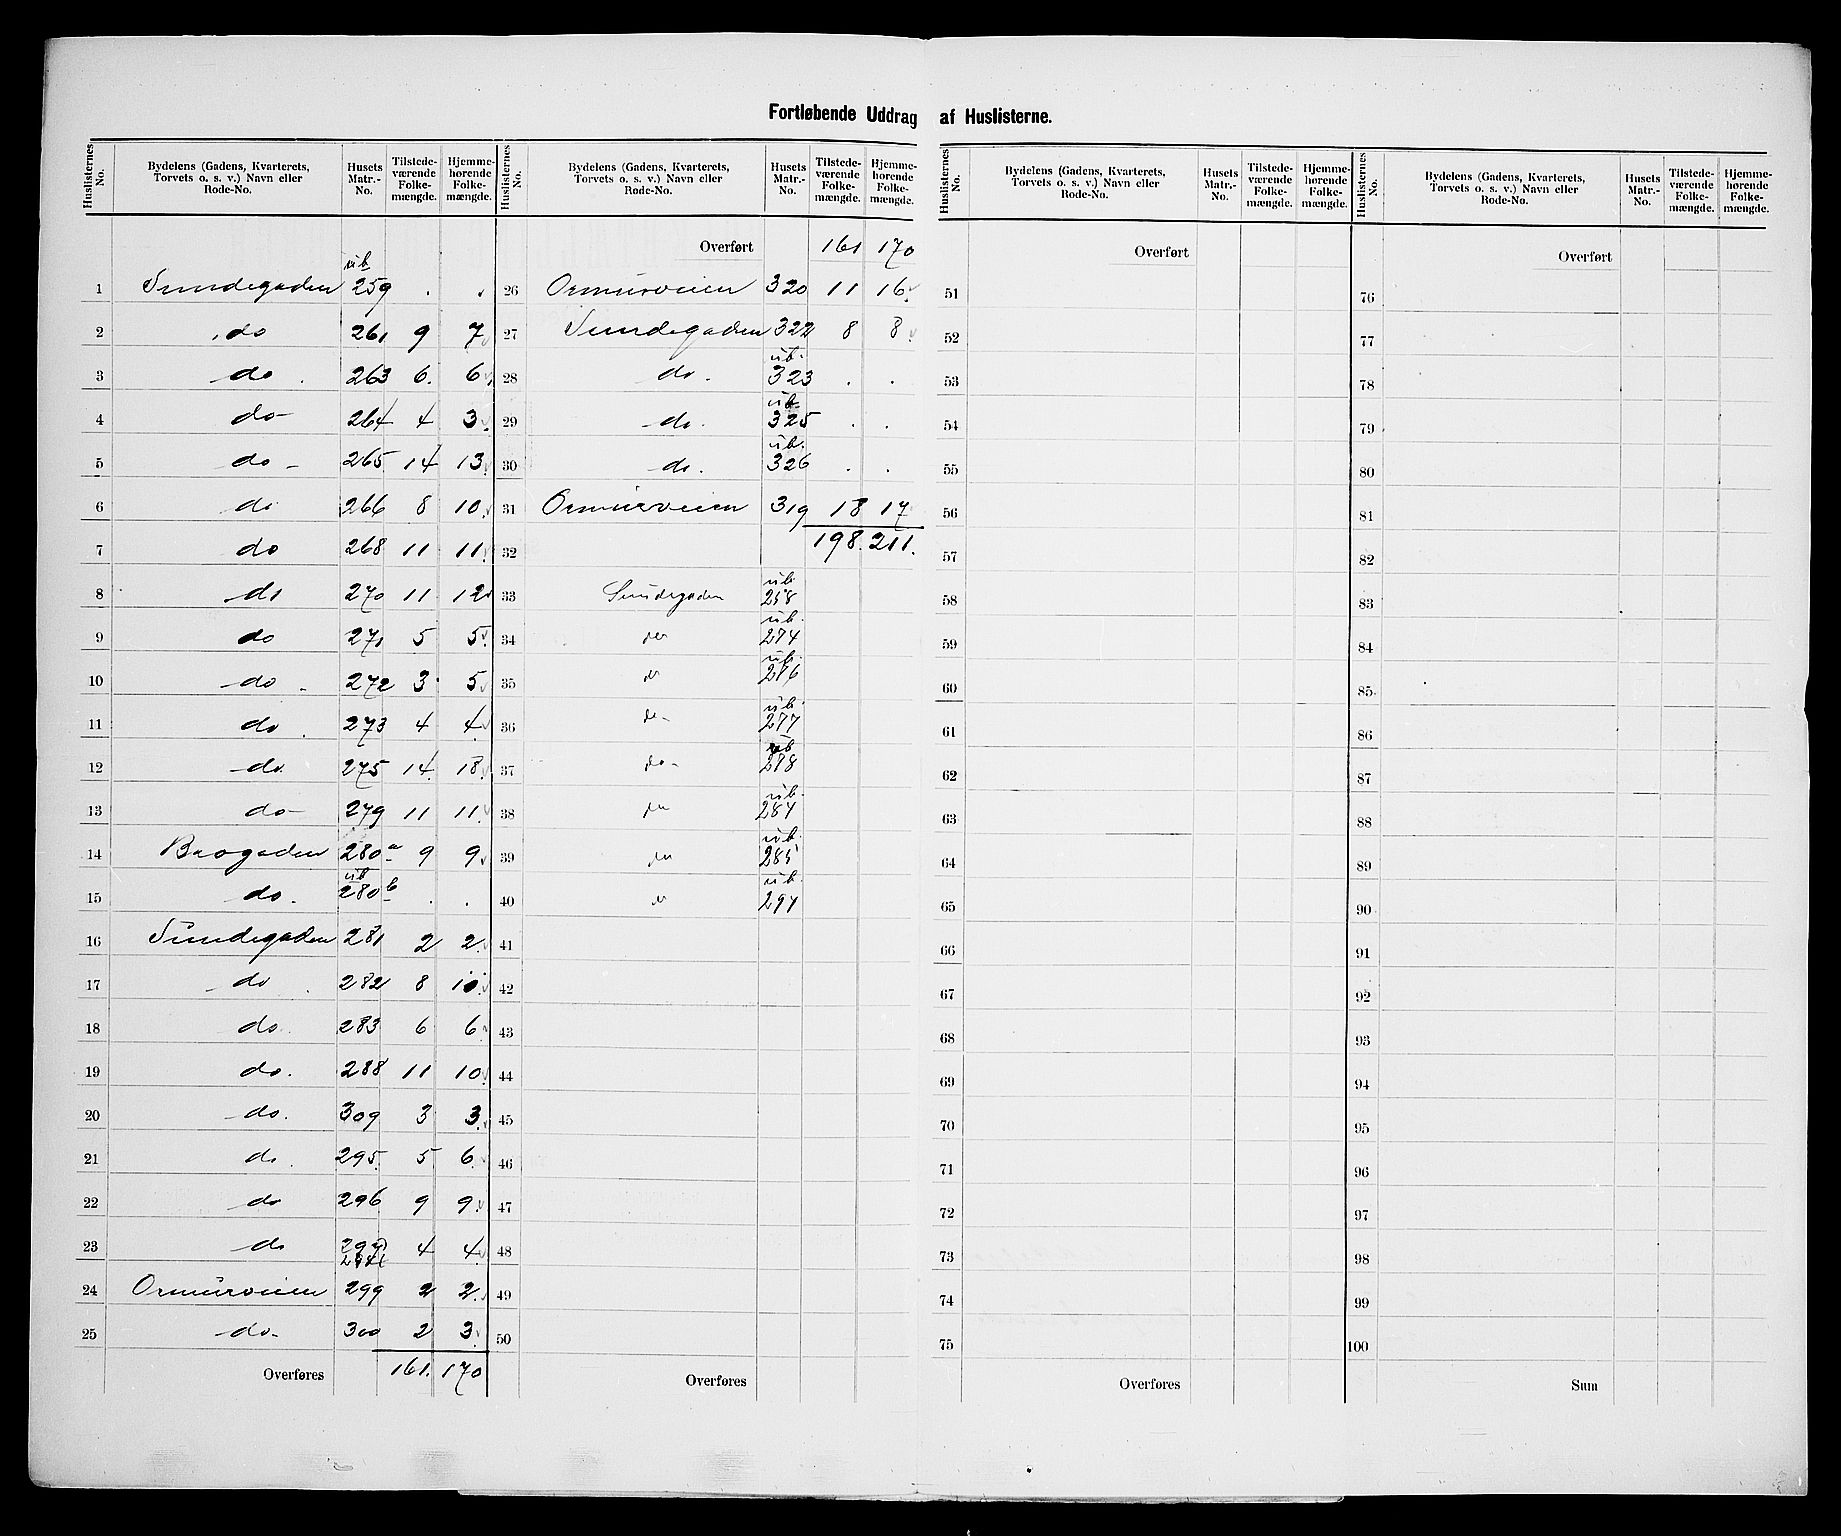 Fortløbende Uddrag af Huslisterne.
Huslisternes No. | Bydelens (Gadens, Kvarterets, Torvets o. s. v.) Navn eller Rode-No. | Husets Matr.-No. | Tilstedeværende Folkemængde. | Hjemmehørende Folkemængde.
1 Sundegaden ub 259 . .
2 do 261 9 7
3 do 263 6 6
4 do 264 4 3
5 do 265 14 13
6 do 266 8 10
7 do 268 11 11
8 do 270 11 12
9 do 271 5 5
10 do 272 3 5
11 do 273 4 4
12 do 275 14 18
13 do 279 11 11
14 Brogaden 280a 9 9
15 do. ub 280b . .
16 Sundegaden 281 2 2
17 do 282 8 10
18 do. 283 6 6
19 do. 288 11 10
20 do. 309 3 3
21 do. 295 5 6
22 do 296 9 9
23 do 297 4 4
24 Ormursveien 299 2 2
25 do 300 2 3
Overføres 161. 170
Huslisternes No. | Bydelens (Gadens, Kvarterets, Torvets o. s. v.) Navn eller Rode-No. | Husets Matr.-No. | Tilstedeværende Folkemængde. | Hjemmehørende Folkemængde.
Overført 161 170
26 Ormursveien 320 11 16
27 Sundegaden 322 8 8
28 do. ub. 323 . .
29 do. ub 325 . .
30 do. ub. 326 . .
31 Ormursveien 319 18 17
32 198. 211.
33 Sundegaden ub 258
34 do ub. 274
35 do ub. 276
36 do ub. 277
37 do ub 278
38 do ub. 284
39 do ub. 285
40 do ub. 294
41
42
43
44
45
46
47
48
49
50
Overføres
Huslisternes No. | Bydelens (Gadens, Kvarterets, Torvets o. s. v.) Navn eller Rode-No. | Husets Matr.-No. | Tilstedeværende Folkemængde. | Hjemmehørende Folkemængde.
Overført
51
52
53
54
55
56
57
58
59
60
61
62
63
64
65
66
67
68
69
70
71
72
73
74
75
Overføres
Huslisternes No. | Bydelens (Gadens, Kvarterets, Torvets o. s. v.) Navn eller Rode-No. | Husets Matr.-No. | Tilstedeværende Folkemængde. | Hjemmehørende Folkemængde.
Overført
76
77
78
79
80
81
82
83
84
85
86
87
88
89
90
91
92
93
94
95
96
97
98
99
100
Sum